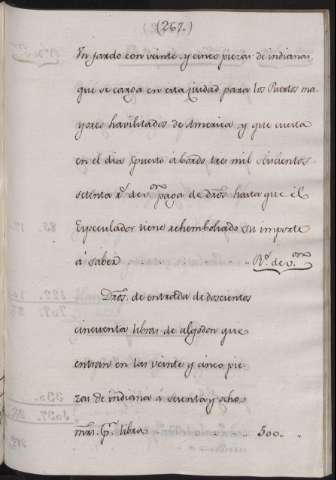 (267.)
Un fardo con veinte y cinco piezas de indianas
que se carga en esta ciudad para los Puertos ma
yores havilitados de America y que cuesta
en el dia puesto a bordo tres mil seicientos
setenta r.s de v.on paga de dros. hasta que el
Especulador viene rehembolsado su importe
a saber R.s de v.on
Dros. de entrada de docientos
cincuenta libras de algodon que
entran en las veinte y cinco pie
zas de indiana á sesenta y ocho
mrs. p.r libra 500..